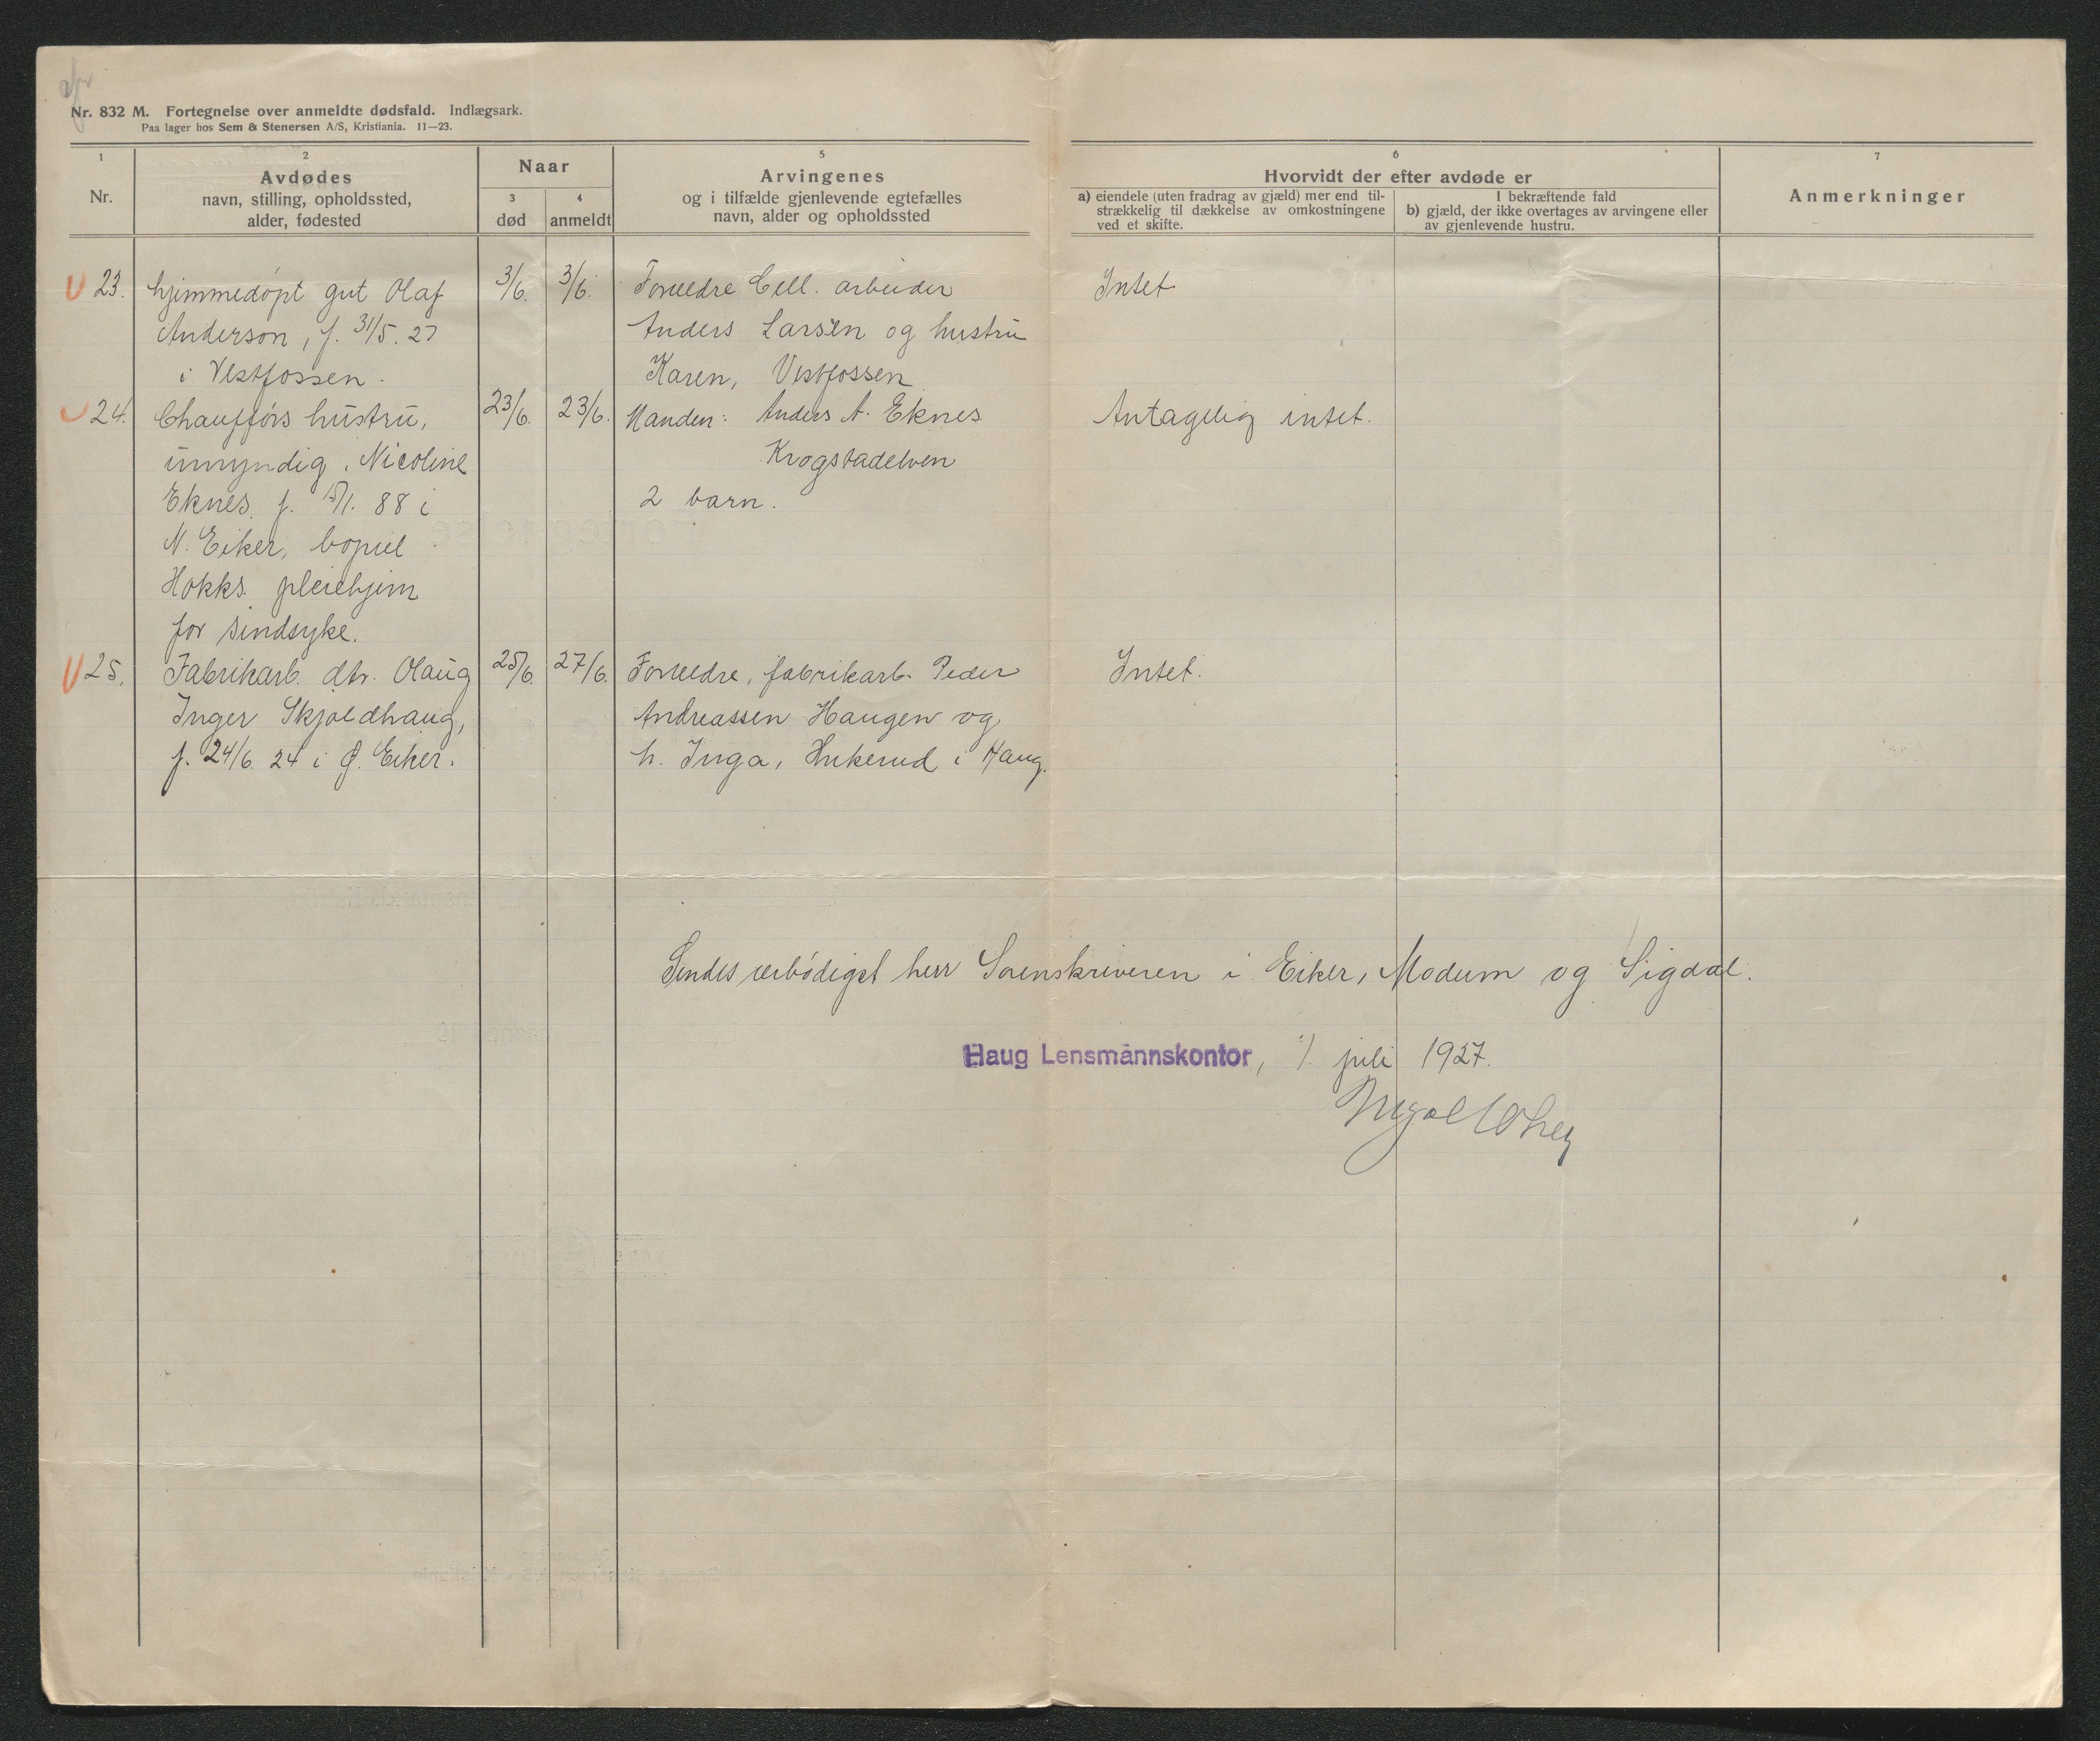 Nr. 832 M. Fortegnelse over anmeldte dødsfald. Indlægsark.
Paa lager hos Sem & Stenersen A/S, Kristiania. 11—23.
1
Nr.
2
Avdødes
navn, stilling, opholdssted,
alder, fødested
Naar
3
død
4
anmeldt
5
Arvingenes
og i tilfælde gjenlevende egtefælles
navn, alder og opholdssted
6
Hvorvidt der efter avdøde er
a) eiendele (uten fradrag av gjæld) mer end til-
strækkelig til dækkelse av omkostningene
ved et skifte.
I bekræftende fald
b) gjæld, der ikke overtages av arvingene eller
av gjenlevende hustru.
7
Anmerkninger
23. hjemmedøpt gut Olaf 3/6. 3/6. Forældre Cell. arbeider Intet
Anderson, f. 31/5. 27 Anders Larsen og hustru
i Vestfossen. Karen, Vestfossen
24. Chaufførs hustru, 23/6. 23/6. Manden: Anders A. Eknes Antagelig intet.
umyndig, Nicoline Krogstadelven
Eknes f. 15/1. 88 i 2 barn.
N. Eiker, bopæl
Hokks. pleiehjem
for sindsyke.
25. Fabrikarb. dtr. Olaug 25/6. 27/6. Forældre, fabrikarb. Peder Intet.
Inger Skjoldhaug, Andreassen Haugen og
f. 24/6. 24 i Ø. Eiker. h. Inga, Hukerud i Haug.
Sendes ærbødigst herr Sorenskriveren i Eiker, Modum og Sigdal.
Haug Lensmannskontor, 1/. juli 1927.